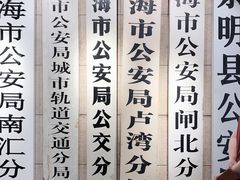 海市公安局南汇分
市公安局城市轨道交通分局
海市公安局公交分
海市公安局卢湾分
海市公安局闸北分
崇明县公安